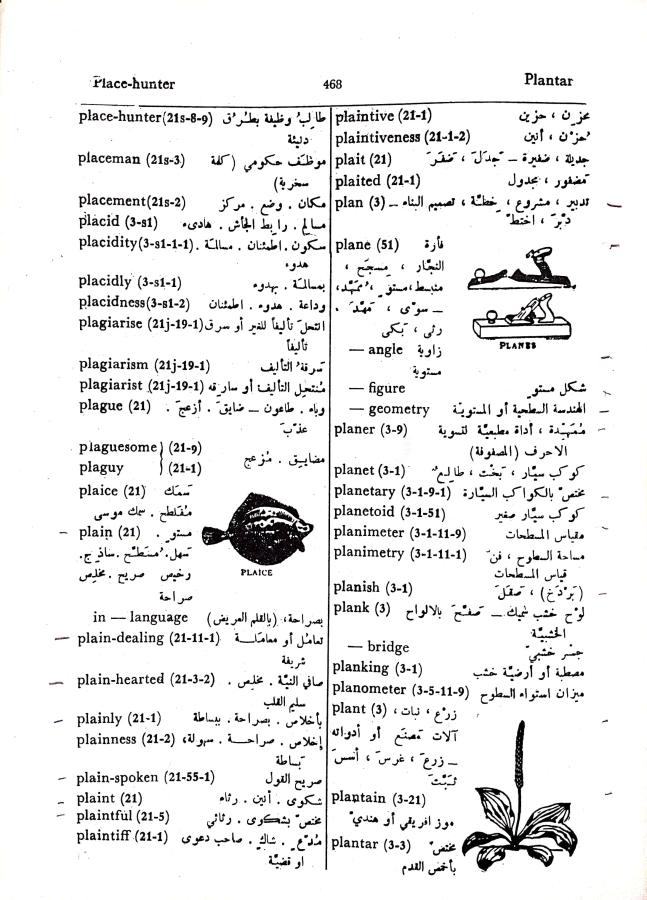 Place-hunter 468 Plantar
place-hunter(21s-8-9) طالب وظيفة بطرق
دنيئة
placeman (21s-3) موظف حكومي (كلمة
سخرية)
placement(21s-2) مكان . وضع . مركز
placid (3-s1) مسالم . رابط الجأش . هادىء
placidity(3-s1-1-1) سكون . اطمئنان . مسالمة .
هدوء
placidly (3-s1-1) بمسالمة . بهدوء
placidness(3-s1-2) وداعة . هدوء . اطمئنان
plagiarise (21j-19-1) انتحل تأليفاً للغير أو سرق
تأليفاً
plagiarism (21j-19-1) سرقة التأليف
plagiarist (21j-19-1) مُنتحِل التأليف أو سارقه
plague (21) وباء . طاعون — ضايقَ . أزعجَ .
عذّبَ
plaguesome (21-9)
plaguy (21-1) مضايق . مُزعج
plaice (21) سمك
مُفلطح . سمك موسى
plain (21) مستوٍ .
سهل . مُسطّح . ساذج .
رخيص صريح . مخلص
صراحة
in — language بصراحة، (بالقلم العريض)
plain-dealing (21-11-1) تعامل أو معاملة
شريفة
plain-hearted (21-3-2) صافي النيّة . مخلص .
سليم القلب
plainly (21-1) بأخلاص . بصراحة . ببساطة
plainness (21-2) إخلاص . صراحة . سهولة،
بَساطة
plain-spoken (21-55-1) صريح القول
plaint (21) شكوى . أنين . رثاء
plaintful (21-5) مختصّ بشكوى . رثائي
plaintiff (21-1) مُدّعٍ . شاكٍ . صاحب دعوى
او قضيّة
PLAICE
plaintive (21-1) محزن ، حزين
plaintiveness (21-1-2) حُزْن ، أنين
plait (21) جديلة ، ضفيرة — جَدَلَ ، ضَفَرَ
plaited (21-1) مَضفور ، مجدول
plan (3) تدبير ، مشروع ، خطّة ، تصميم البناء —
دبّرَ ، اختطّ
plane (51) فأرة
النجّار ، مِسحَج ،
منبسط، مستوٍ ، مُمَهَّد،
— سوّى ، مَهّدَ ،
— angle زاوية
مستوية
— figure شكل مستوٍ
— geometry الهندسة السطحية أو المستويّة
PLANES
planer (3-9) مُمَهّدة ، أداة مطبعيّة لتسوية
الاحرف (المصفوفة)
planet (3-1) كوكب سيّار ، بَخْت ، طالع
planetary (3-1-9-1) مختصّ بالكواكب السيّارة
planetoid (3-1-51) كوكب سيّار صغير
planimeter (3-1-11-9) مقياس المسطحات
planimetry (3-1-11-1) مساحة السطوح ، فنّ
قياس المسطحات
planish (3-1) (بَرْدَخَ) ، صَقَلَ
plank (3) لوْح خشب سميك — صَفّحَ بالالواح
الخشبيّة
— bridge جسر خشبيّ
planking (3-1) مصطبة أو أرضيّة خشب
planometer (3-5-11-9) ميزان استواء السطوح
plant (3) زرع ، نبات ،
آلات مَصنَع أو أدواته
— زرعَ ، غرسَ ، أسّسَ
ثَبّتَ
plantain (3-21)
موز افريقي أو هنديّ
plantar (3-3) مختصّ
بأخمص القدم